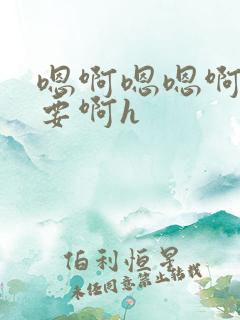 嗯啊嗯嗯啊
要啊h
伯利恒星
未经同意禁止转载